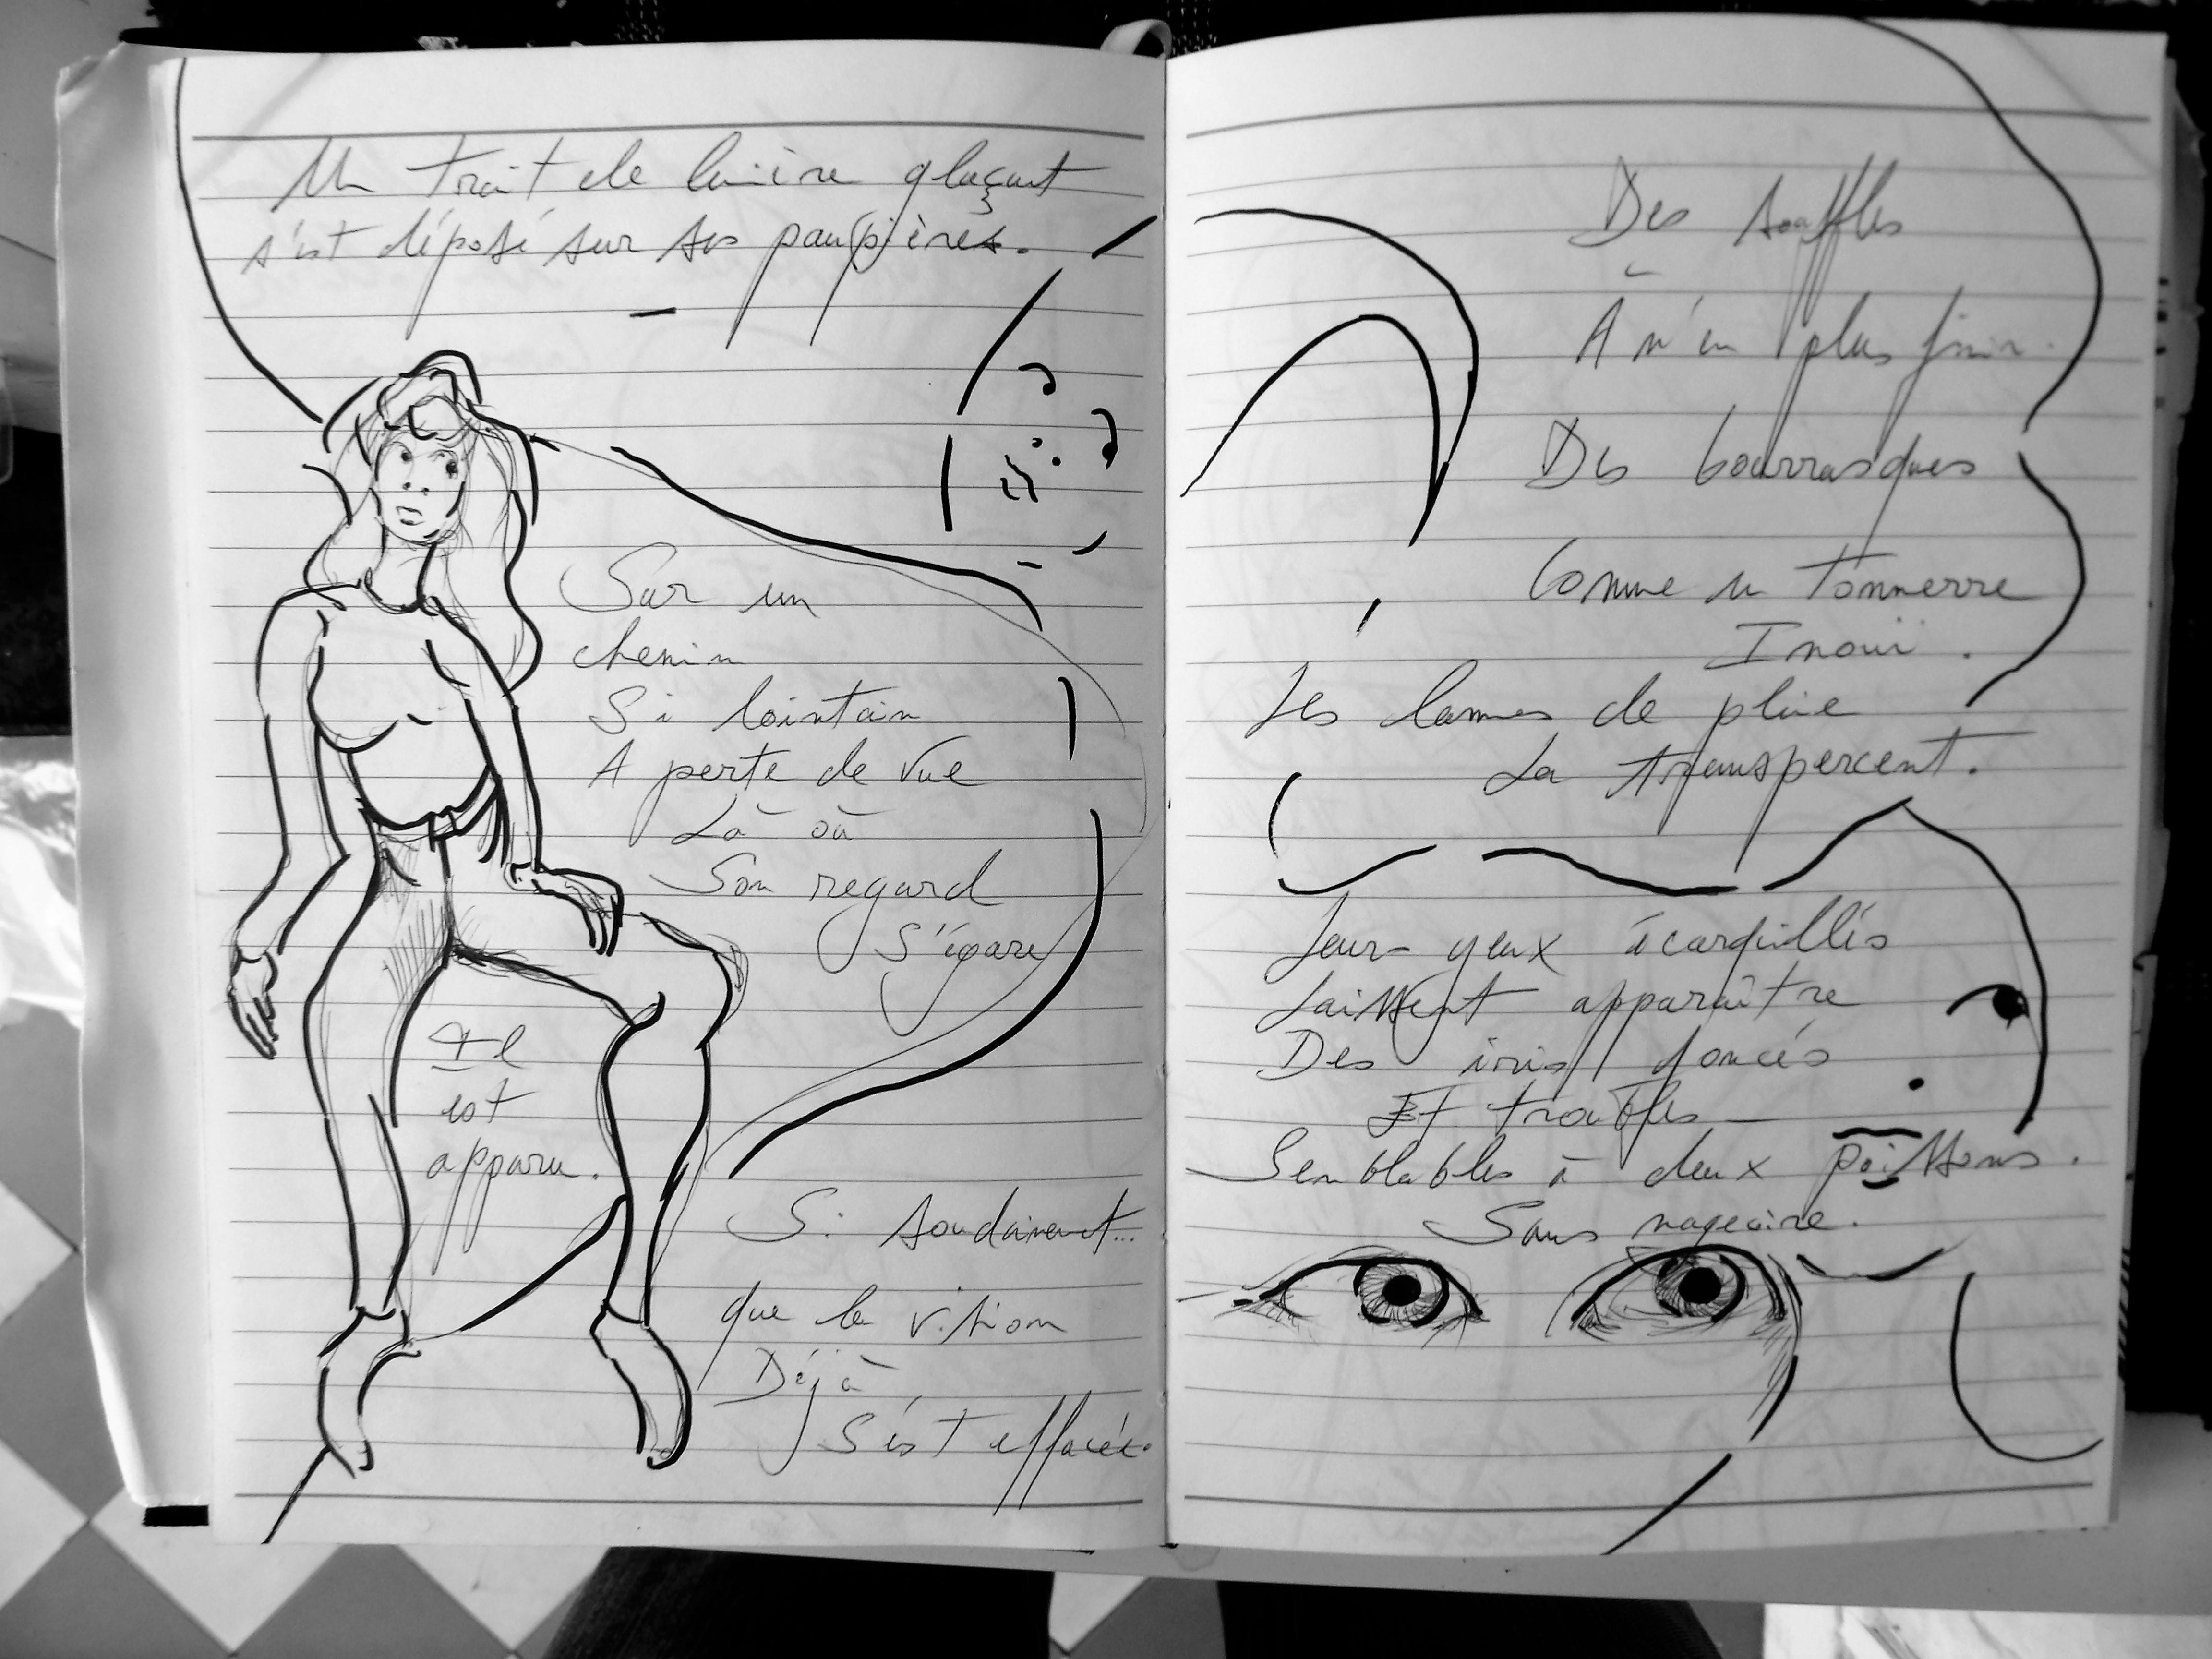 Un trait de lumière glaçant
s'est déposé sur ses paupières.
Sur un
chemin
Si lointain
A perte de vue
Là où
Son regard
S'égare
Il
est
apparu.
Si soudainement...
que la vision
Déjà
S'est effacée.
Des souffles
À n'en plus finir.
Des bourrasques
Comme un tonnerre
Inouï.
Les lames de pluie
La transpercent.
Leurs yeux écarquillés
Laissent apparaître
Des iris foncés
Et troubles
Semblables à deux poissons.
Sans nageoire.